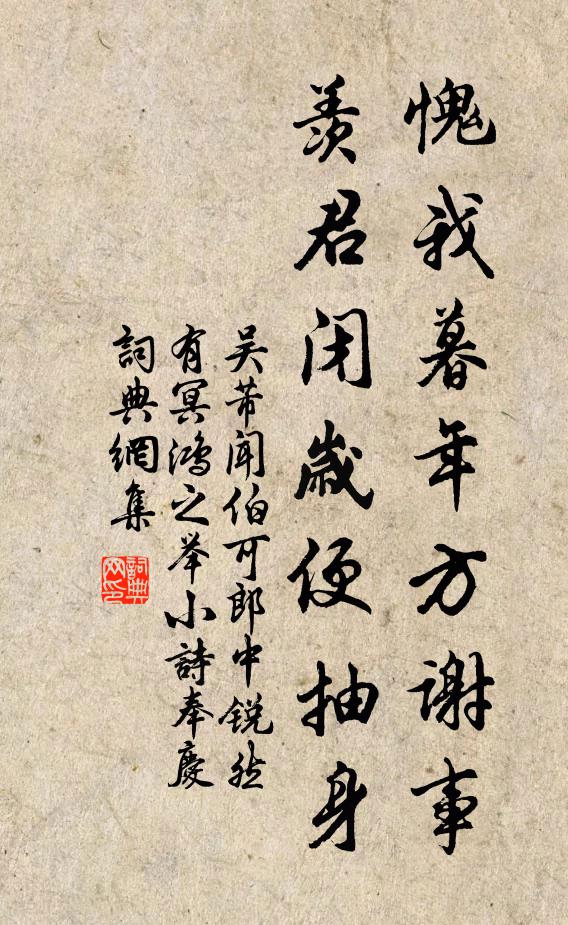 愧我暮年方謝事
羨君闭歲便抽身
吴芾闻伯可郎中锐然
有冥鴻之举小詩奉慶
詞典網集
詞典
网印